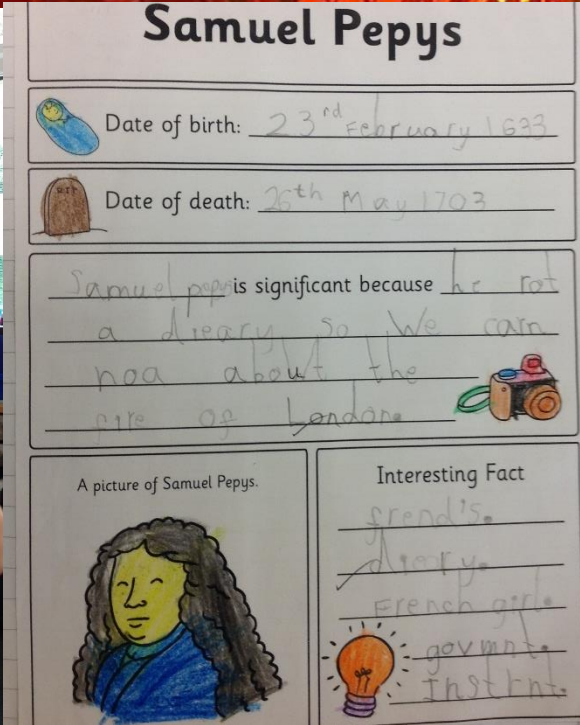 Samuel Pepys
Date of birth: 23rd February 1633
RIP
Date of death: 26th May 1703
Samuel pepys is significant because he rot
a dieary so We carn
noa about the
fire of London.
A picture of Samuel Pepys.
Interesting Fact
frend's.
dieary.
French girl.
govmnt.